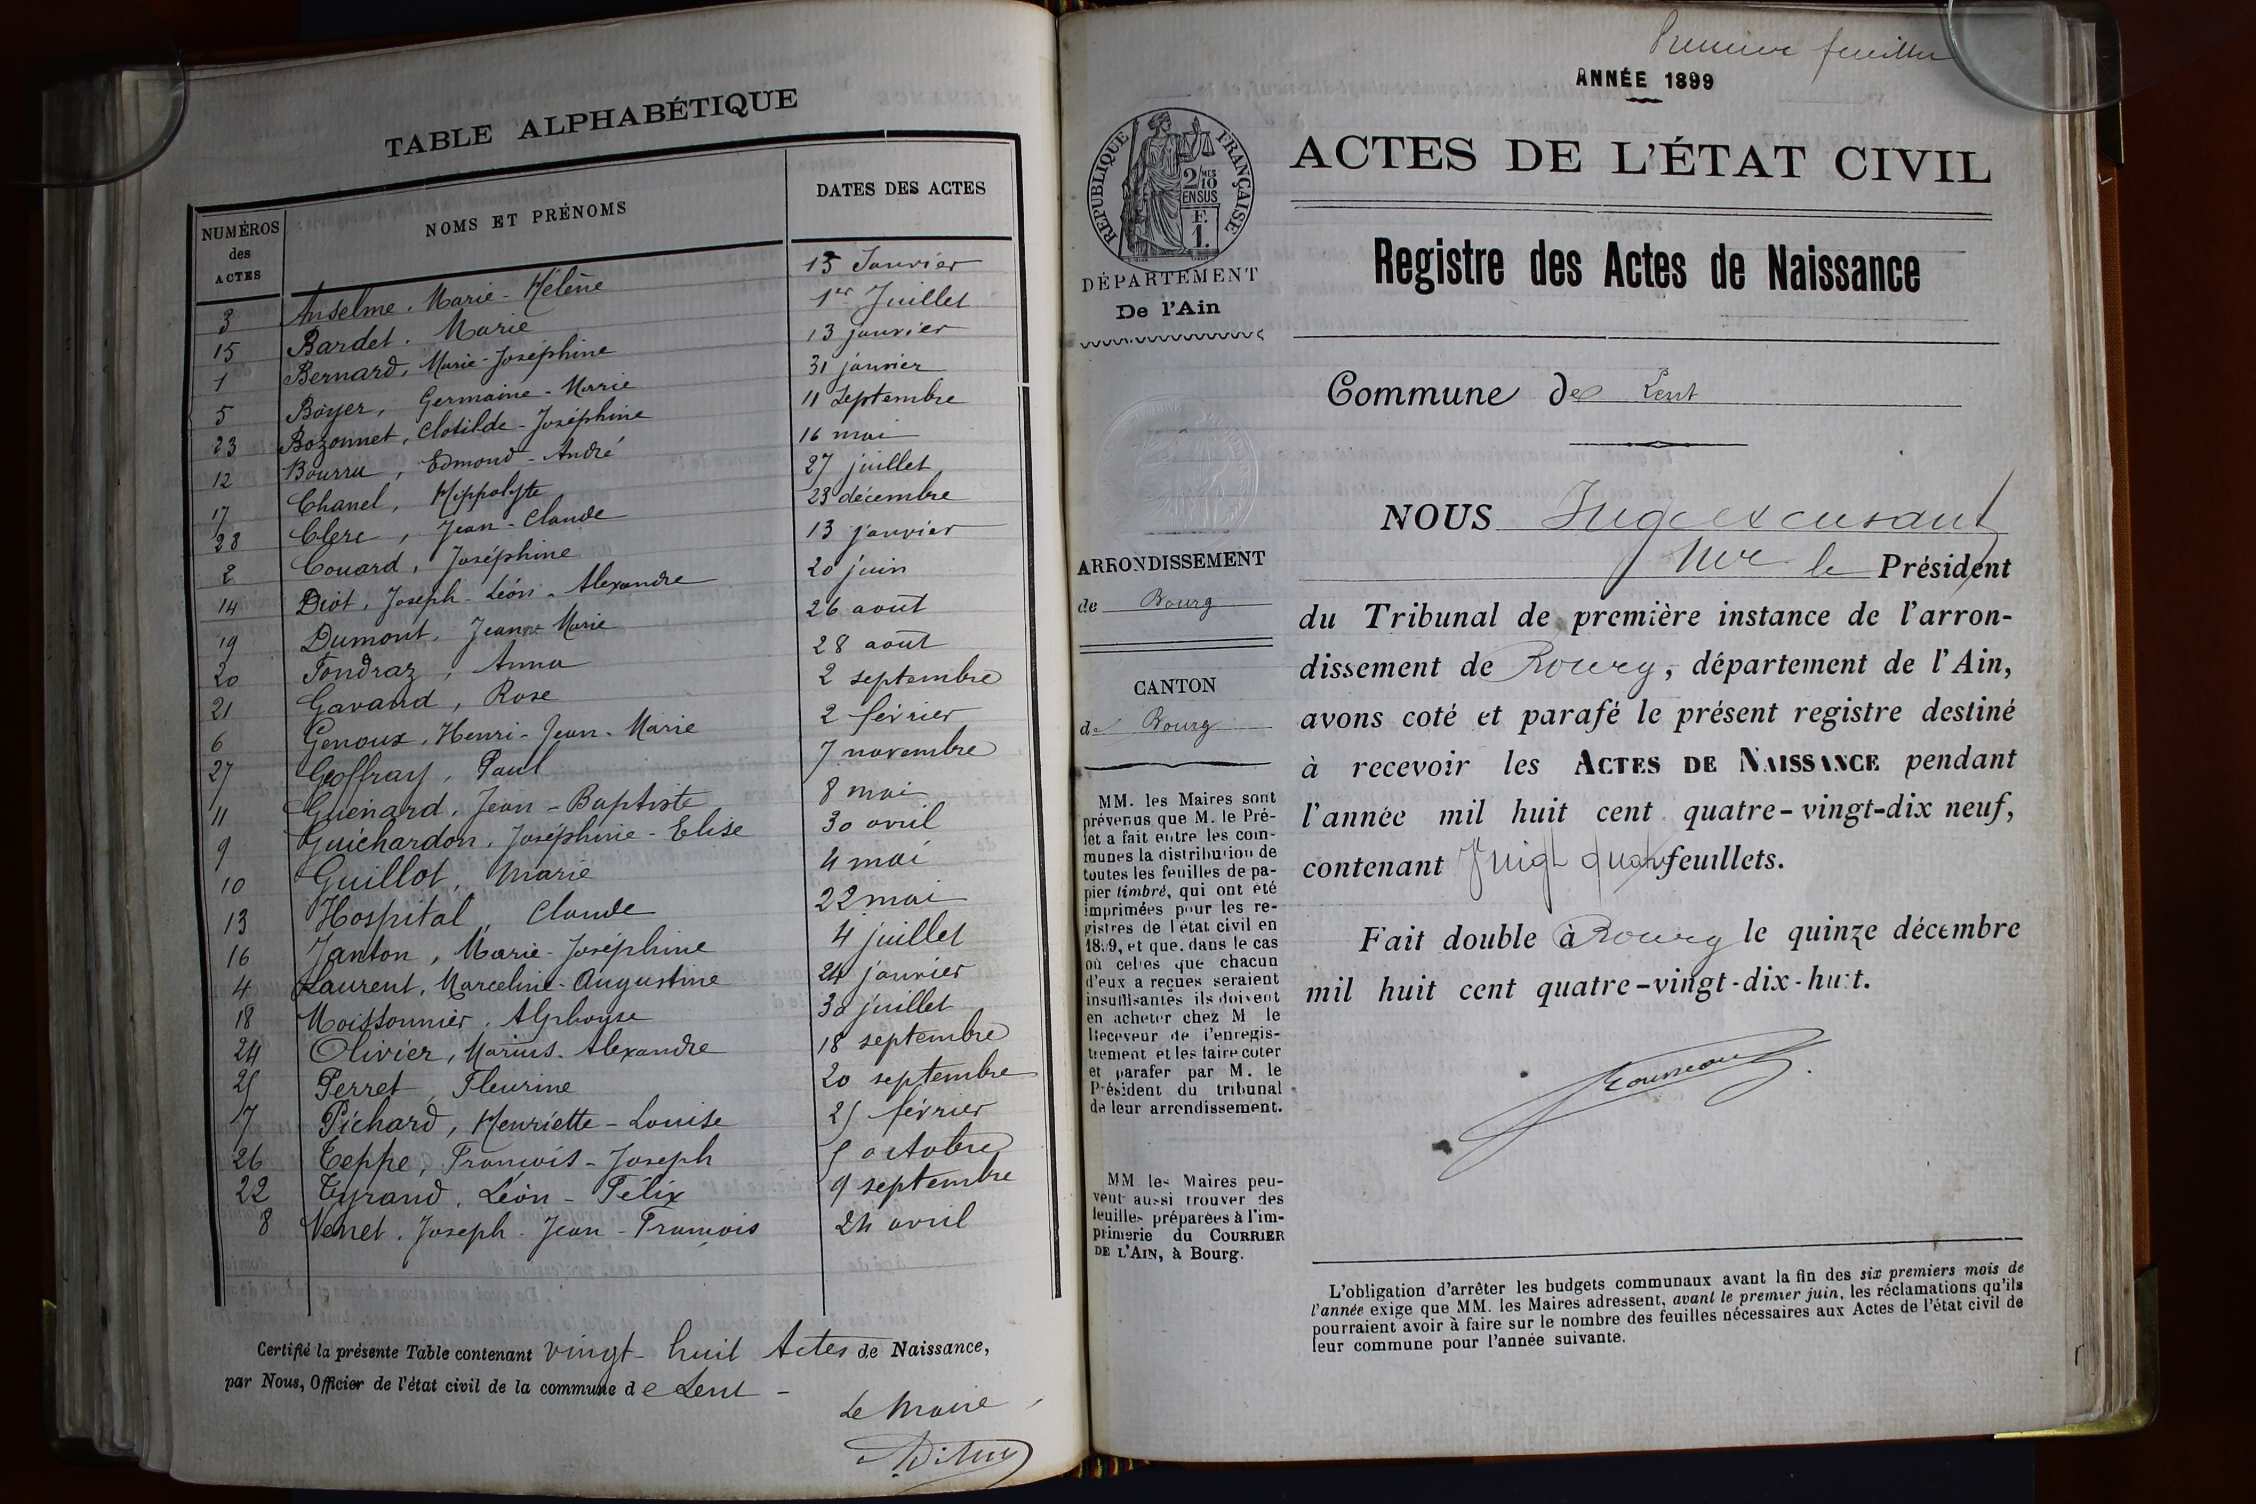 TABLE ALPHABÉTIQUE
NUMÉROS des ACTES NOMS ET PRÉNOMS DATES DES ACTES
3 Anselme, Marie-Hélène 15 Janvier
15 Bardet, Marie 1er Juillet
1 Bernard, Marie-Joséphine 13 janvier
5 Boyer, Germaine-Marie 31 janvier
23 Bozonnet, Clotilde-Joséphine 11 septembre
12 Bourru, Edmond-André 16 mai
17 Chanel, Hippolyte 27 juillet
28 Clerc, Jean-Claude 23 décembre
2 Couard, Joséphine 13 janvier
14 Diot, Joseph-Léon-Alexandre 20 juin
19 Dumont, Jeanne Marie 26 août
20 Fondraz, Anna 28 août
21 Gavard, Rose 2 septembre
6 Genoux, Henri-Jean-Marie 2 février
27 Geoffray, Paul 7 novembre
11 Guénard, Jean-Baptiste 8 mai
9 Guichardon, Joséphine-Elise 30 avril
10 Guillot, Marie 4 mai
13 Hospital, Claude 22 mai
16 Janton, Marie-Joséphine 4 juillet
4 Laurent, Marceline-Augustine 24 janvier
18 Moissonnier, Alphonse 30 juillet
24 Olivier, Marius-Alexandre 18 septembre
25 Perret, Fleurine 20 septembre
7 Pichard, Henriette-Louise 25 février
26 Teppe, François-Joseph 5 octobre
22 Tyrand, Léon-Félix 9 septembre
8 Venet, Joseph-Jean-François 24 avril
Certifié la présente Table contenant vingt-huit Actes de Naissance,
par Nous, Officier de l'état civil de la commune de Lent -
Le Maire
Première feuillet
ANNÉE 1899
RÉPUBLIQUE FRANÇAISE
2/10 MES
EN SUS
F.
1.
DÉPARTEMENT
De l'Ain
ARRONDISSEMENT
de Bourg
CANTON
de Bourg
MM. les Maires sont
prévenus que M. le Pré-
fet a fait entre les com-
munes la distribution de
toutes les feuilles de pa-
pier timbré, qui ont été
imprimées pour les re-
gistres de l'état civil en
1899, et que, dans le cas
où celles que chacun
d'eux a reçues seraient
insuffisantes ils doivent
en acheter chez M le
Receveur de l'enregis-
trement et les faire coter
et parafer par M. le
Président du tribunal
de leur arrondissement.
MM les Maires peu-
vent aussi trouver des
feuilles préparées à l'im-
primerie du COURRIER
DE L'AIN, à Bourg.
ACTES DE L'ÉTAT CIVIL
Registre des Actes de Naissance
Commune de Lent
NOUS Juge excusant
Mr le Président
du Tribunal de première instance de l'arron-
dissement de Bourg, département de l'Ain,
avons coté et parafé le présent registre destiné
à recevoir les ACTES DE NAISSANCE pendant
l'année mil huit cent quatre-vingt-dix neuf,
contenant vingt quatre feuillets.
Fait double à Bourg le quinze décembre
mil huit cent quatre-vingt-dix-huit.
L'obligation d'arrêter les budgets communaux avant la fin des six premiers mois de
l'année exige que MM. les Maires adressent, avant le premier juin, les réclamations qu'ils
pourraient avoir à faire sur le nombre des feuilles nécessaires aux Actes de l'état civil de
leur commune pour l'année suivante.